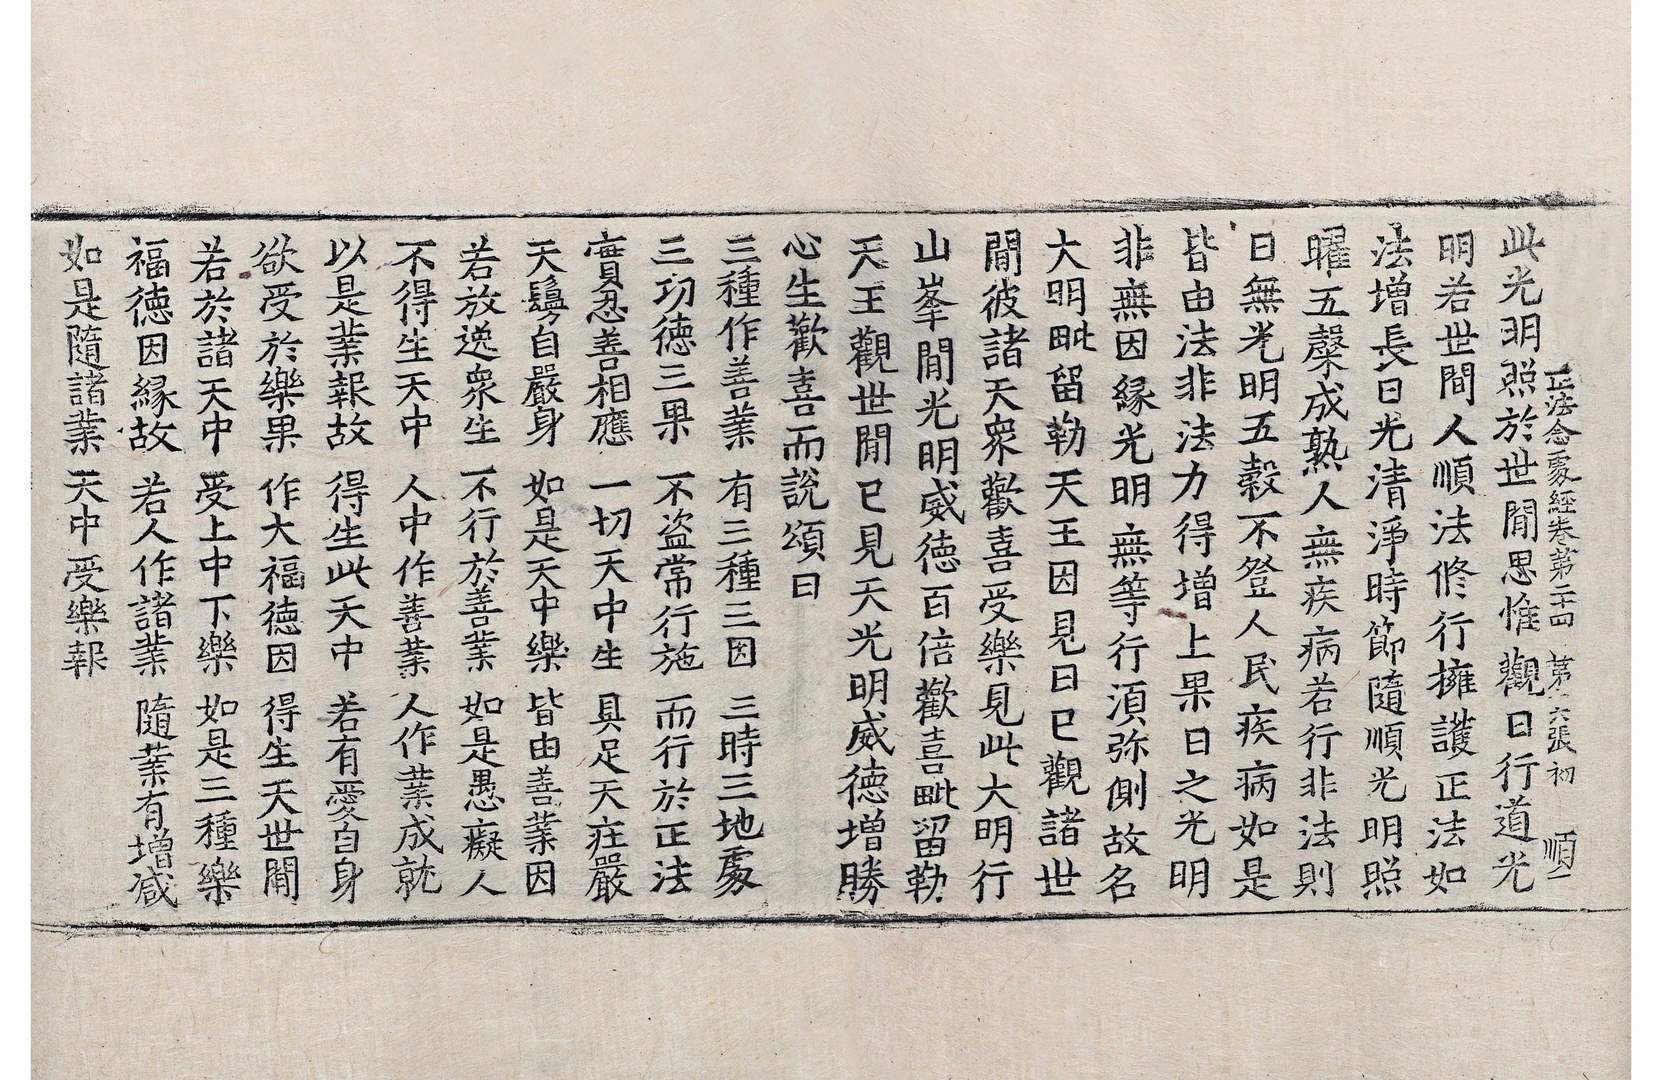 正法念處經卷第二十四　第六張初　順
此光明照於世間思惟觀日行道光
明若世間人順法修行擁護正法如
法增長日光清淨時節隨順光明照
曜五糵成熟人無疾病若行非法則
日無光明五穀不登人民疾病如是
皆由法非法力得增上果日之光明
非無因緣光明無等行湏弥側故名
大明毗留勒天王因見日已觀諸世
間彼諸天眾歡喜受樂見此大明行
山峯間光明威德百倍歡喜毗留勒
天王觀世間已見天光明威德增勝
心生歡喜而說頌曰
三種作善業　有三種三因　三時三地處
三功德三果　不盜常行施　而行於正法
實忍善相應　一切天中生　具足天莊嚴
天鬘自嚴身　如是天中樂　皆由善業因
若放逸眾生　不行於善業　如是愚癡人
不得生天中　人中作善業　人作業成就
以是業報故　得生此天中　若有愛自身
欲受於樂果　作大福德因　得生天世間
若於諸天中　受上中下樂　如是三種樂
福德因緣故　若人作諸業　隨業有增減
如是隨諸業　天中受樂報